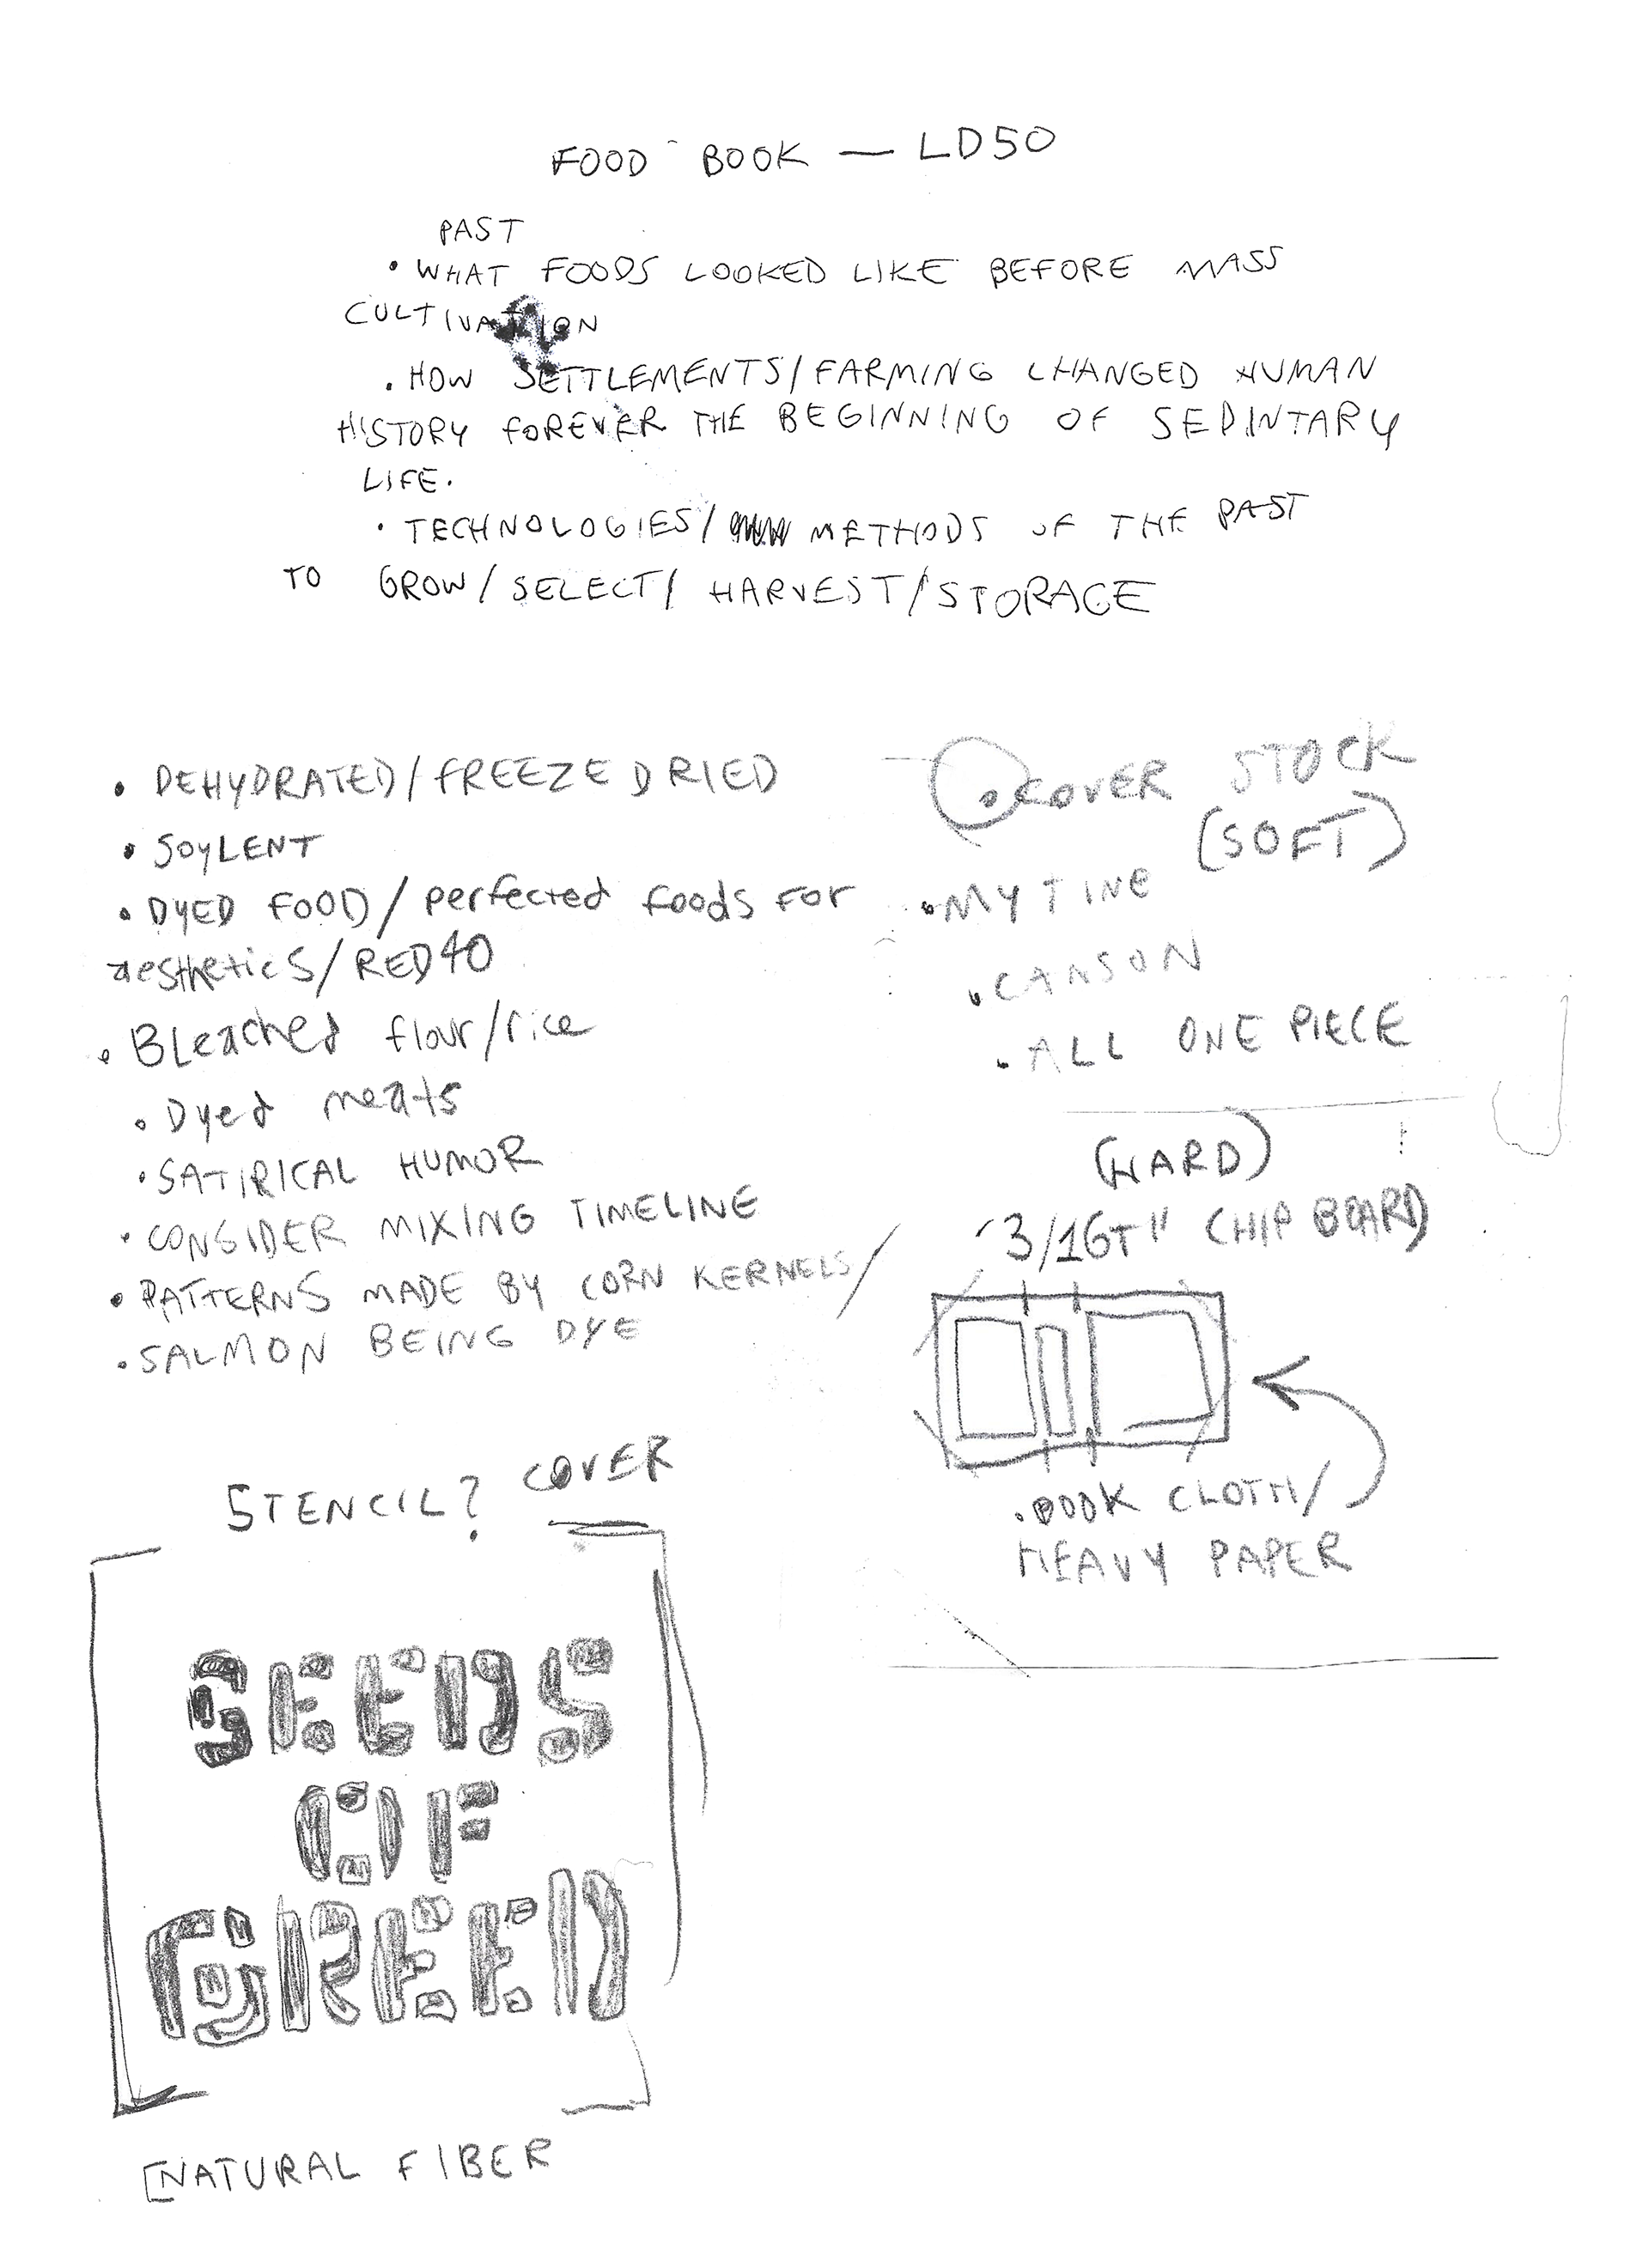 FOOD BOOK — LD50
PAST
• WHAT FOODS LOOKED LIKE BEFORE MASS
CULTIVATION
• HOW SETTLEMENTS/FARMING CHANGED HUMAN
HISTORY FOREVER THE BEGINNING OF SEDINTARY
LIFE.
• TECHNOLOGIES/ METHODS OF THE PAST
TO GROW/SELECT/HARVEST/STORAGE
• DEHYDRATED/FREEZE DRIED
• SOYLENT
• DYED FOOD/perfected foods FOR
aesthetics/RED40
• BLeached flour/rice
• Dyed meats
• SATIRICAL HUMOR
• CONSIDER MIXING TIMELINE
• PATTERNS MADE BY CORN KERNELS/
• SALMON BEING DYE
• COVER STOCK
(SOFT)
• MY TINE
• CANSON
• ALL ONE PIECE
(HARD)
CHIP BOARD
• BOOK CLOTH/
HEAVY PAPER
STENCIL? COVER
SEEDS
OF
GREED
[NATURAL FIBER